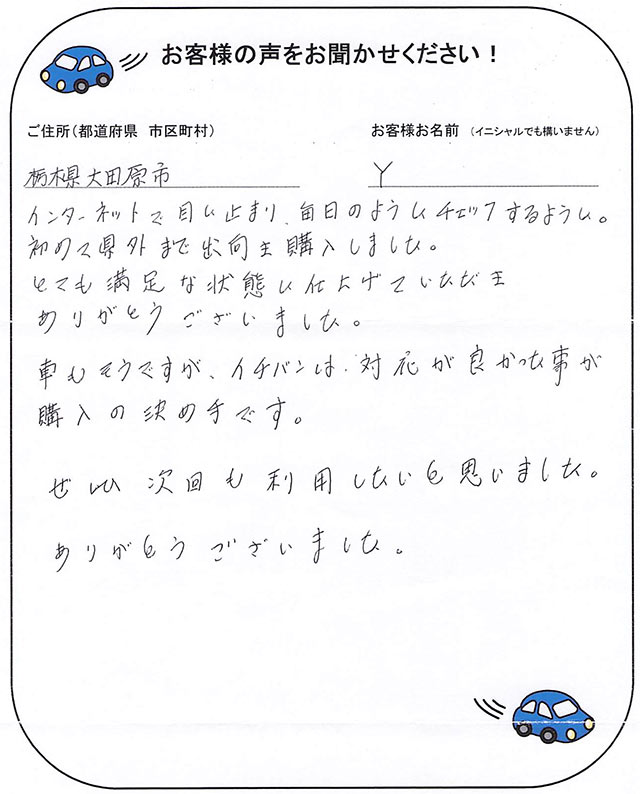 お客様の声をお聞かせください！
ご住所（都道府県　市区町村）　お客様お名前　（イニシャルでも構いません）
栃木県大田原市　Y
インターネットで目に止まり、毎日のようにチェックするように。
初めて県外まで出向き購入しました。
とても満足な状態に仕上げていただき
ありがとうございました。
車もそうですが、イチバンは、対応が良かった事が
購入の決め手です。
ぜひ次回も利用したいと思いました。
ありがとうございました。